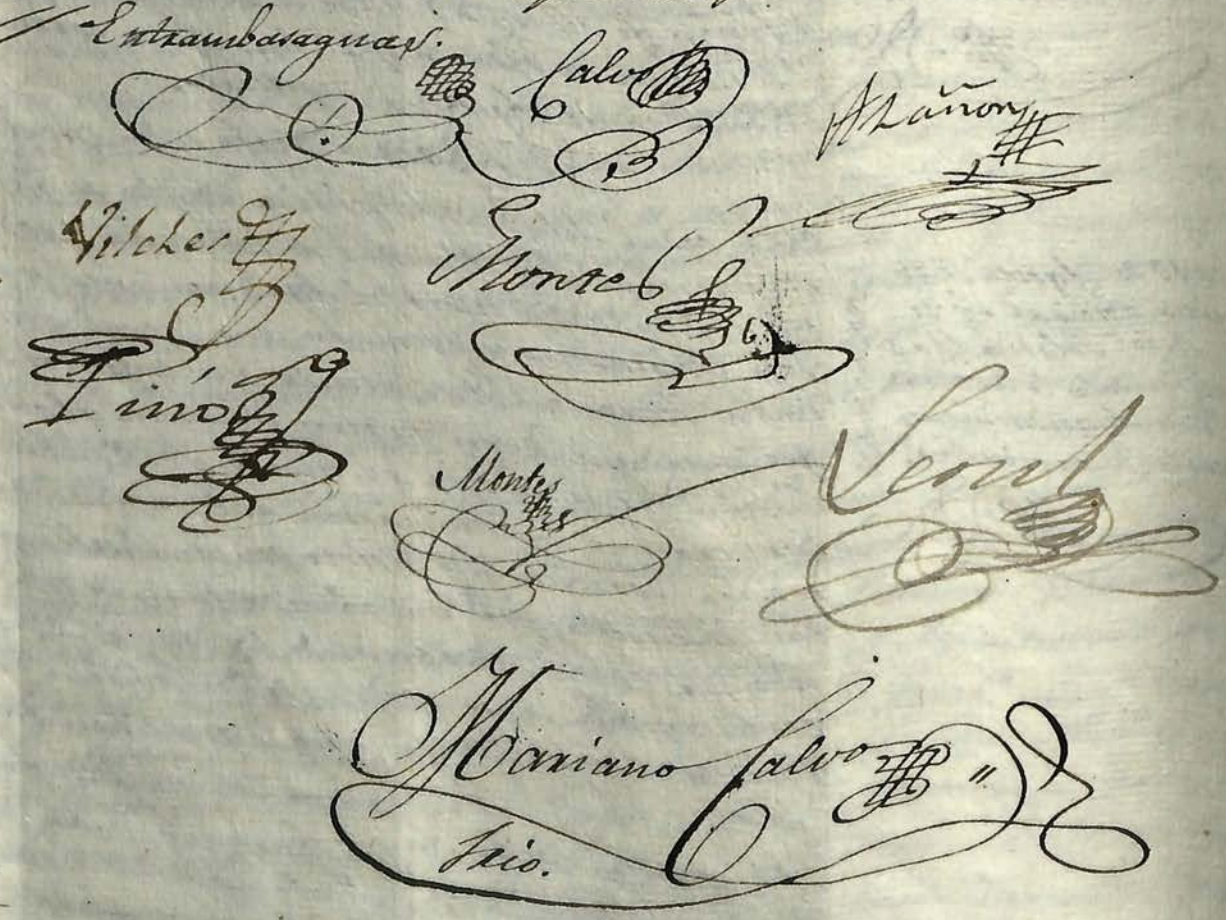 Entrambasaguas.
Calvo
Alañon
Vilches
Montes
Pinó
Montes
Mariano Calvo
Srio.